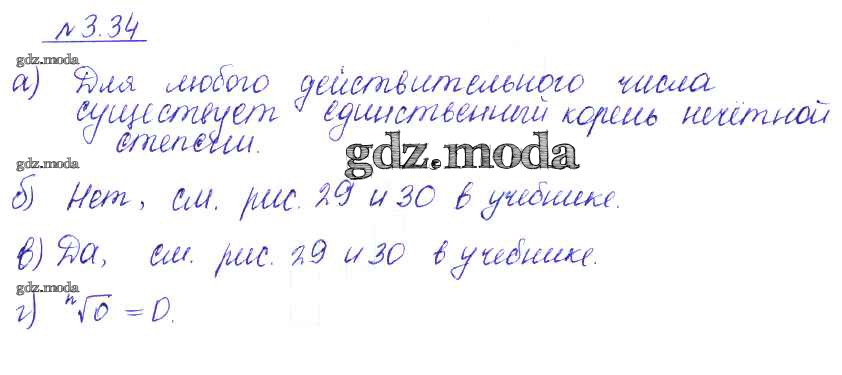 №3.34
gdz.moda
а) Для любого действительного числа
существует единственный корень нечётной
степени.
gdz.moda
gdz.moda
б) Нет, см. рис. 29 и 30 в учебнике.
в) Да, см. рис. 29 и 30 в учебнике.
gdz.moda
г) ⁿ√0 = 0.